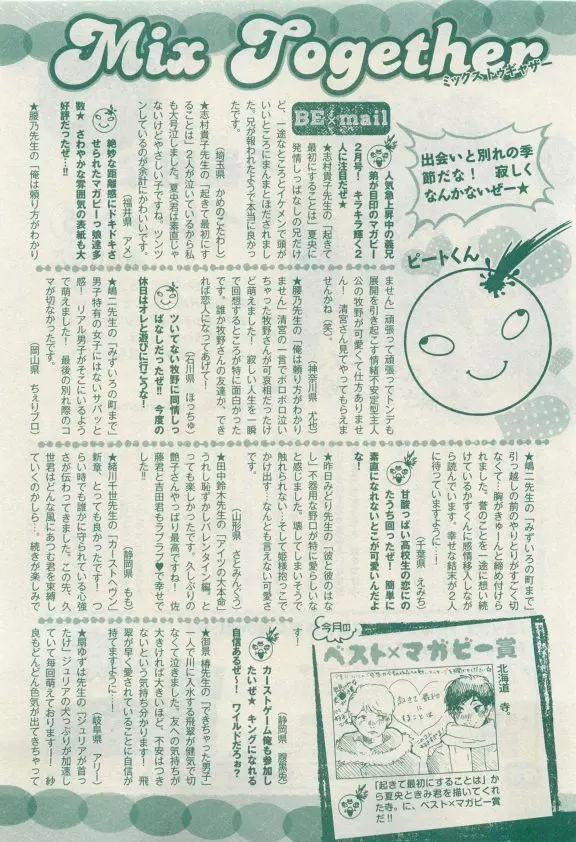 Mix Together
ミックス トゥギャザー
出会いと別れの季
節だな！ 寂しく
なんかないぜー★
ピートくん
BE×mail
人気急上昇中の義兄
弟が目印のマガビー
2月号！ キラキラ輝く2
人に注目だぜ★
★志村貴子先生の「起きて
最初にすることは」夏央に
発情しっぱなしの兄だけ
ど、一途なところとイケメンで頭が
いいところにまんまとほだされまし
た。兄が報われたようで本当に良かっ
たです。
（埼玉県 かめのこだわし）
★志村貴子先生の「起きて最初にす
ることは」2人が泣いているから私
も大号泣しました。夏央君は素直じゃ
ないけどやさしい子ですね。ツンツ
ンしているのが余計にかわいいです。
（福井県 アメ）
絶妙な距離感にドキドキさ
せられたマガビーっ娘達多
数★ さわやかな雰囲気の表紙も大
好評だったぜ…!!
★腰乃先生の「俺は頼り方がわかり
ません」頑張って頑張ってトンデモ
展開を引き起こす情緒不安定型主人
公の牧野が可愛くて仕方ありませ
ん！ 清宮さん見てやってもらえま
せんかね（笑）。
（神奈川県 尤也）
★腰乃先生の「俺は頼り方がわかり
ません」清宮の一言でボロボロ泣い
ちゃった牧野さんが可哀相だったけ
ど萌えました！ 寂しい人生を一瞬
で回想するところが特に面白かった
です。誰か牧野さんの友達か、でき
れば恋人になってあげて！
（石川県 ほっちゅ）
ツいてない牧野に同情しっ
ぱなしだったぜ!! 今度の
休日はオレと遊びに行こうな！
★嶋二先生の「みずいろの町まで」
男子特有の女子にはないサバッと
感！ リアル男子がそこにいるよう
で萌えました！ 最後の別れ際のコ
マが切なかったです。
（岡山県 ちぇりブロ）
★嶋二先生の「みずいろの町まで」
引っ越しの前のやりとりがすごく切
なくて…胸がきゅーんと締め付けら
れました。誉のことを一途に想い続
けているかずくんに感情移入しなが
ら読んでいます。幸せな結末が2人
に待っていますように…！
（千葉県 えみち）
甘酸っぱい高校生の恋にの
たうち回ったぜ！ 簡単に
素直になれないとこが可愛いんだよ
な！
★昨日みどり先生の「彼と彼のはな
し」不器用な野口が特に愛らしいな
と感じました。壊してしまいそうで
触れられない…そして姫様抱っこで
かけ出す…なんとも言えない可愛さ
です。
（山形県 さとみんくう）
★田中鈴木先生の「アイツの大本命」
うれし恥ずかしバレンタイン編、と
っても楽しかったです。久しぶりの
艶子さんやっぱり最高ですね！ 佐
藤君と吉田君もラブラブ♥で幸せで
した!!
（静岡県 もも）
★緒川千世先生の「カーストヘヴン」
新章、とっても良かったです！ つ
らい時でも誰かに守られている心強
さが伝わってきました。この先、久
世はどんな風にあつむ君を束縛し
ていくのかしら…。続きが楽しみで
す！
（静岡県 腹黒先）
カーストゲーム俺も参加し
たいぜ★ キングになれる
自信あるぜ〜！ ワイルドだろぉ？
★御景椿先生の「できちゃった男子」
一人で川に入水する飛翠が健気で切
なくて泣きました。友への気持ちが
大きければ大きいほど、不安はつき
ないという気持ち分かります！ 飛
翠が早く愛されていることに自信が
持てますように…！
（岐阜県 アリー）
★扇ゆずは先生の「ジュリアが首っ
たけ」ジュリアの犬っぷりが加速し
ていて毎回萌えております！ 紗
良もどんどん色気が出てきちゃって
今月の
ベスト×マガビー賞
北海道 寺。
起きて最初に
することは
「起きて最初にすることは」か
ら夏央ときみ君を描いてくれ
た寺。に、ベスト×マガビー賞
だ!!